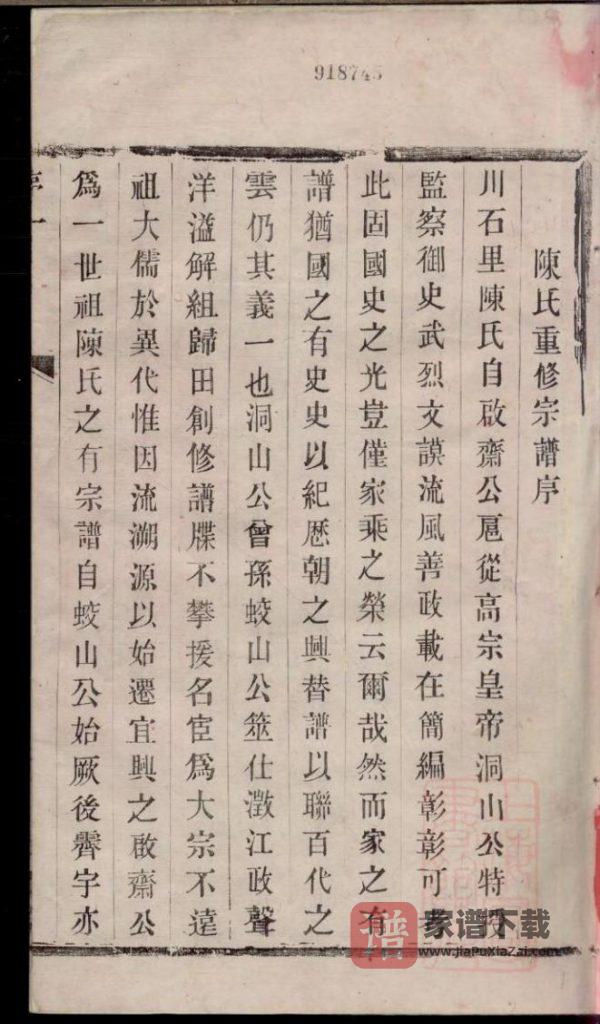 918745
陳氏重修宗譜序
川石里陳氏自啟齋公扈從高宗皇帝洞山公特授
監察御史武烈文謨流風善政載在簡編彰彰可考
此固國史之光豈僅家乘之榮云爾哉然而家之有
譜猶國之有史史以紀歷朝之興替譜以聯百代之
雲仍其義一也洞山公曾孫蛟山公筮仕澂江政聲
洋溢解組歸田創修譜牒不攀援名宦為大宗不遠
祖大儒於異代惟因流溯源以始遷宜興之啟齋公
為一世祖陳氏之有宗譜自蛟山公始厥後霽宇亦
序一
譜 家谱下载
www.jiaPuXiaZai.com